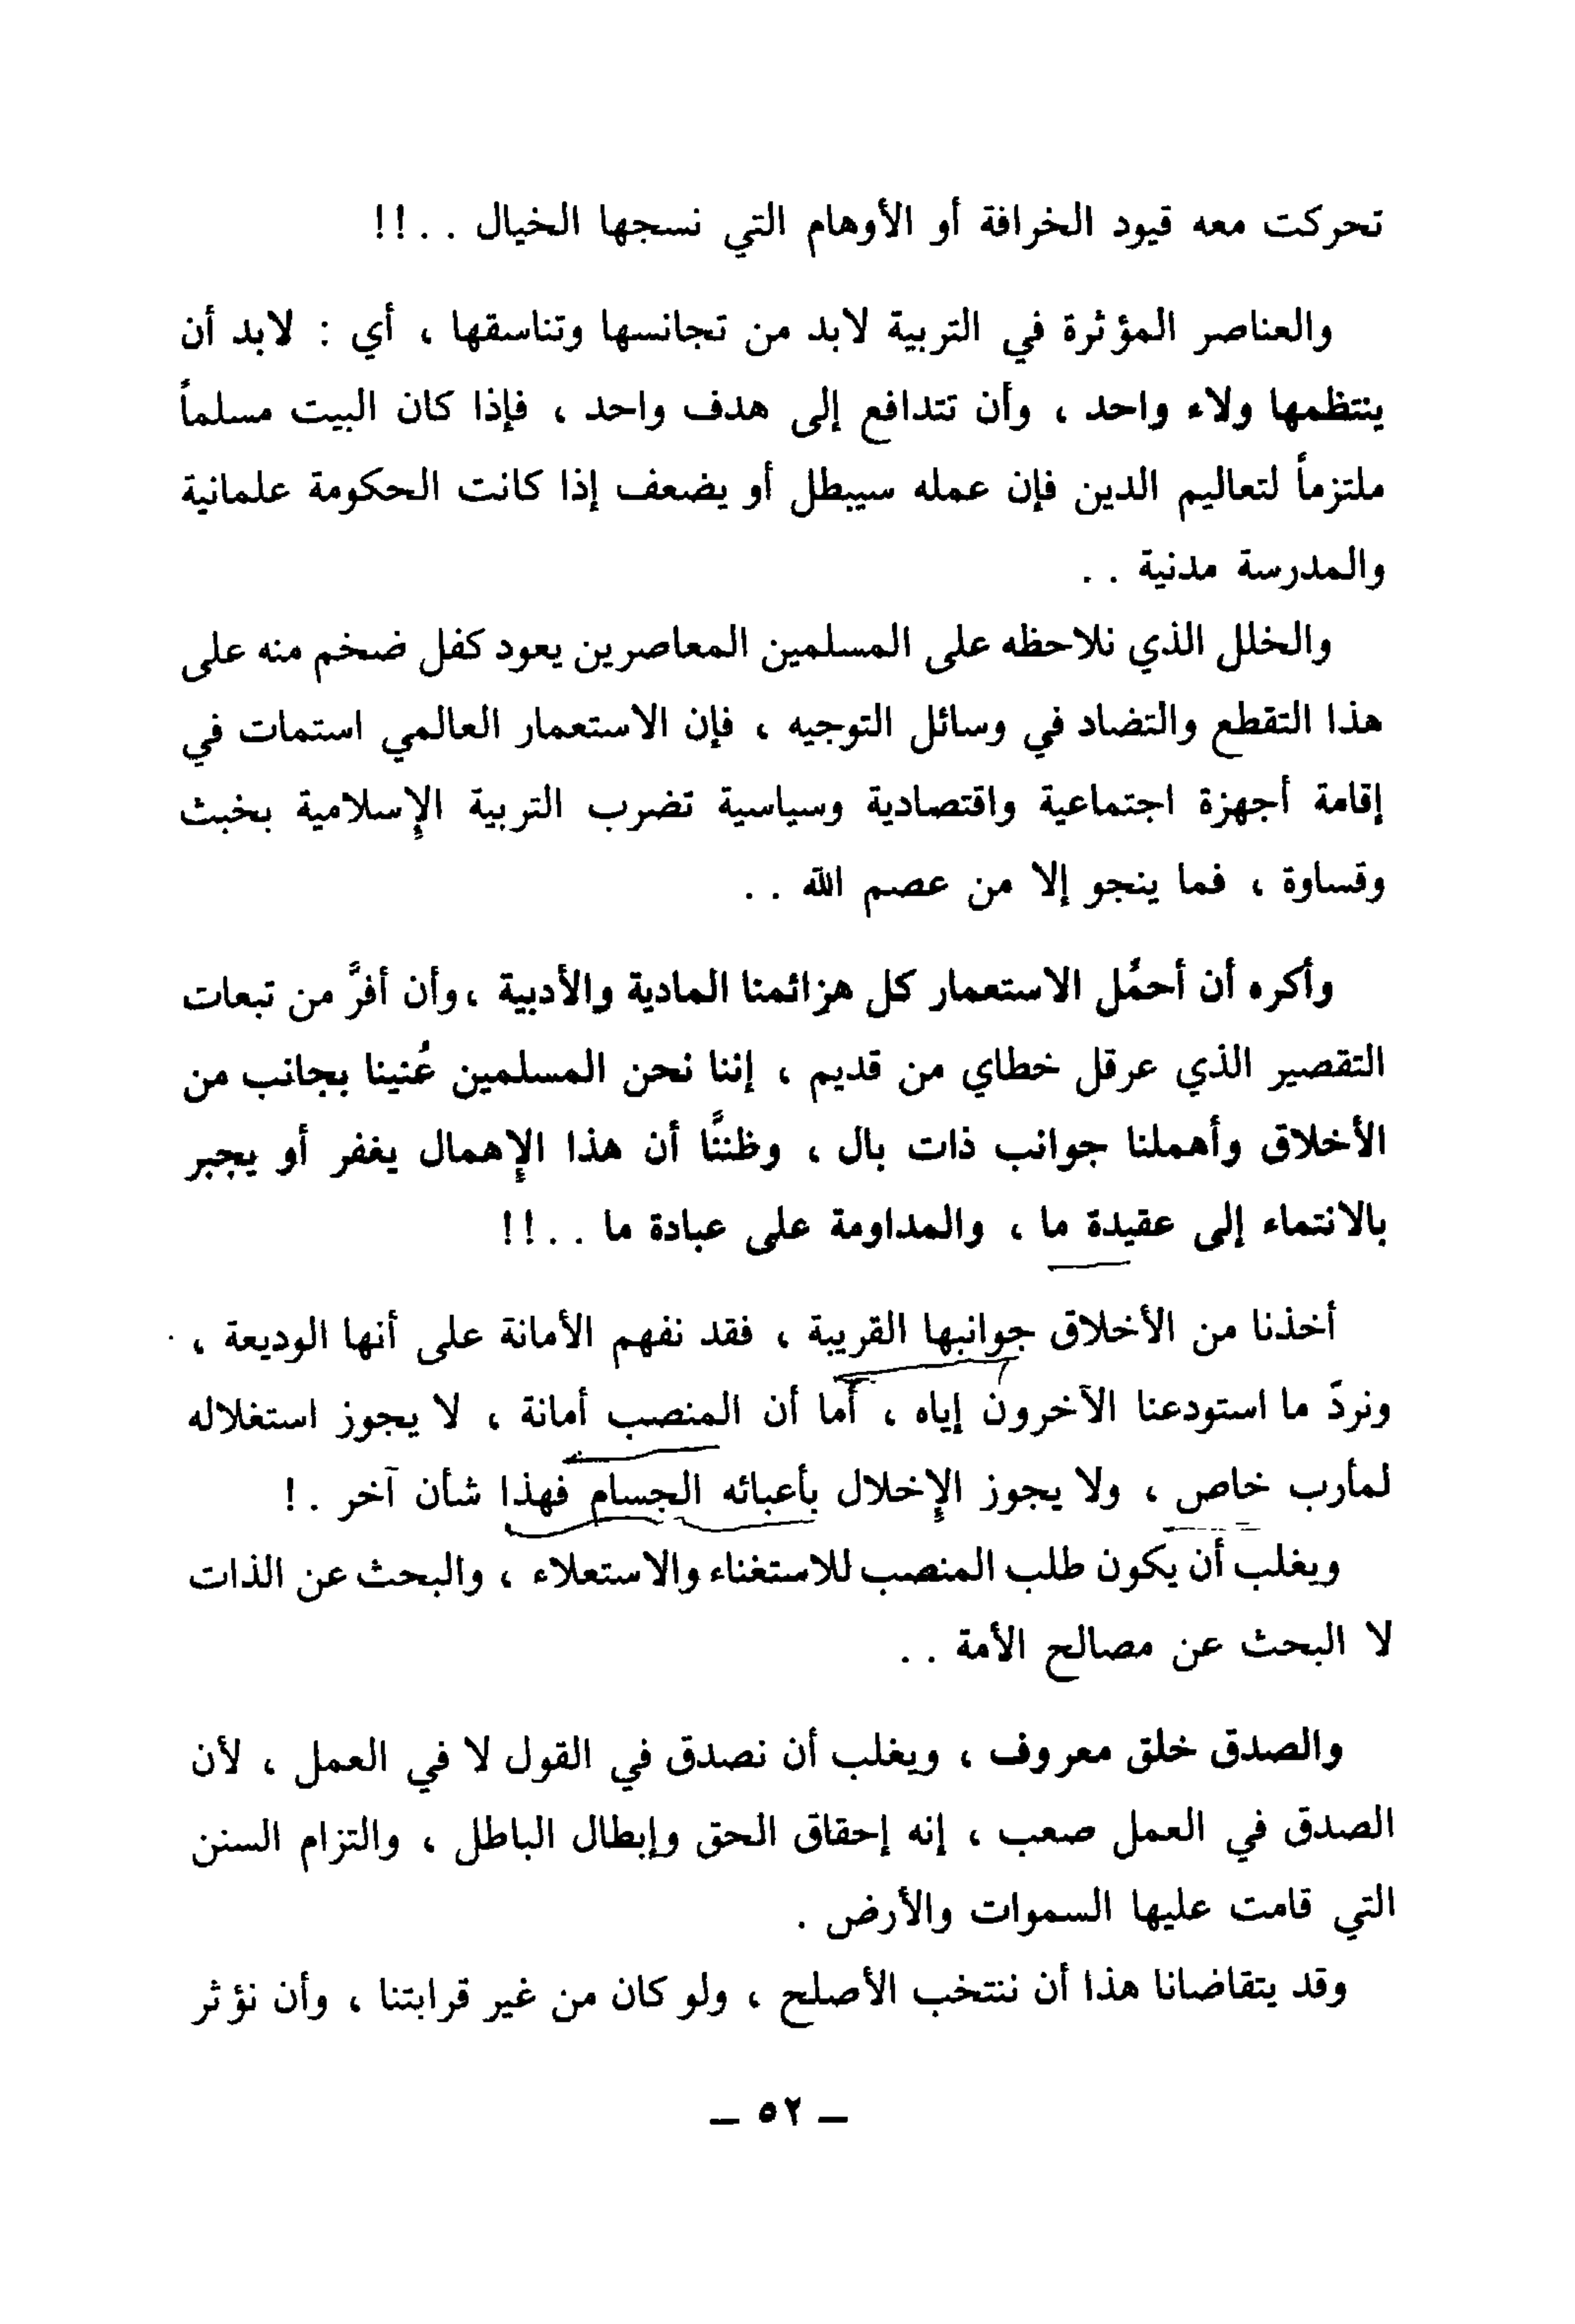 تحركت معه قيود الخرافة أو الأوهام التي نسجها الخيال . . !!
والعناصر المؤثرة في التربية لابد من تجانسها وتناسقها ، أي : لابد أن
ينتظمها ولاء واحد ، وأن تتدافع إلى هدف واحد ، فإذا كان البيت مسلماً
ملتزماً لتعاليم الدين فإن عمله سيبطل أو يضعف إذا كانت الحكومة علمانية
والمدرسة مدنية . .
والخلل الذي نلاحظه على المسلمين المعاصرين يعود كفل ضخم منه على
هذا التقطع والتضاد في وسائل التوجيه ، فإن الاستعمار العالمي استمات في
إقامة أجهزة اجتماعية واقتصادية وسياسية تضرب التربية الإسلامية بخبث
وقساوة ، فما ينجو إلا من عصم الله . .
وأكره أن أحمُل الاستعمار كل هزائمنا المادية والأدبية ، وأن أفرَّ من تبعات
التقصير الذي عرقل خطاي من قديم ، إننا نحن المسلمين عُنينا بجانب من
الأخلاق وأهملنا جوانب ذات بال ، وظننَّا أن هذا الإهمال يغفر أو يجبر
بالانتماء إلى عقيدة ما ، والمداومة على عبادة ما . . !!
أخذنا من الأخلاق جوانبها القريبة ، فقد نفهم الأمانة على أنها الوديعة ،
ونردّ ما استودعنا الآخرون إياه ، أما أن المنصب أمانة ، لا يجوز استغلاله
لمأرب خاص ، ولا يجوز الإخلال بأعبائه الجسام فهذا شأن آخر . !
ويغلب أن يكون طلب المنصب للاستغناء والاستعلاء ، والبحث عن الذات
لا البحث عن مصالح الأمة . .
والصدق خلق معروف ، ويغلب أن نصدق في القول لا في العمل ، لأن
الصدق في العمل صعب ، إنه إحقاق الحق وإبطال الباطل ، والتزام السنن
التي قامت عليها السموات والأرض .
وقد يتقاضانا هذا أن ننتخب الأصلح ، ولو كان من غير قرابتنا ، وأن نؤثر
— ٥٢ —